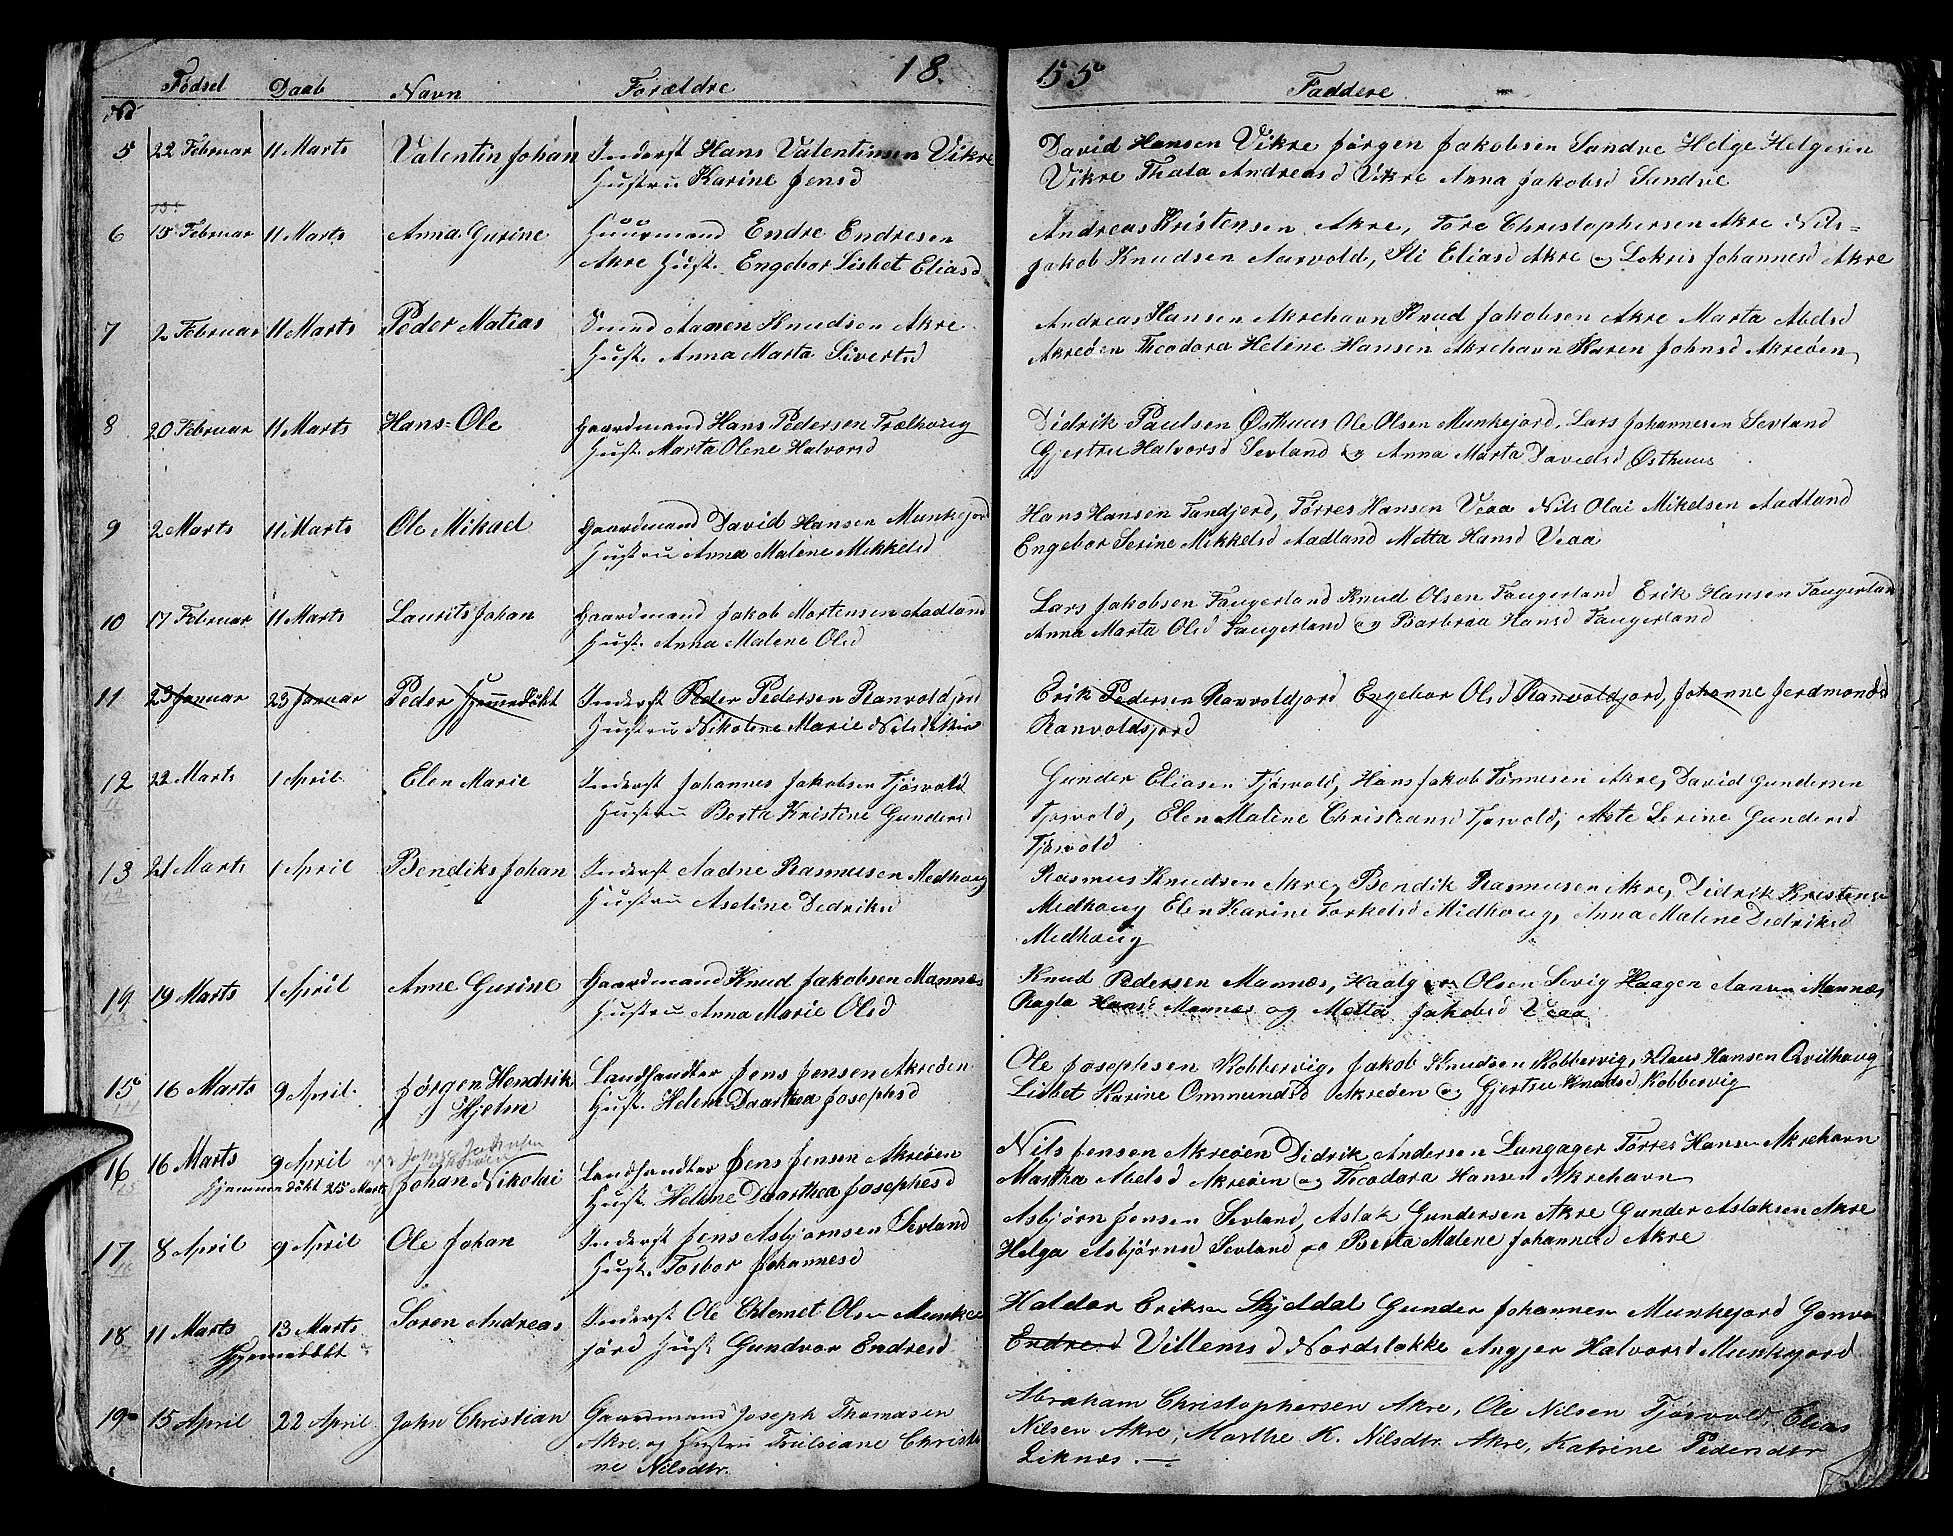 18. 55
Fødsel Daab Navn Forældre Faddere
No
5 22 Februar 11 Marts Valentin Johan Inderst Hans Valentinsen Vikre
Hustru Karine Jensd
David Hansen Vikre Jørgen Jakobsen Sandve Helge Helgesen
Vikre Thala Andreasd Vikre Anna Jakobsd Sandve
6 15 Februar 11 Marts Anna Gurine Huusmand Endre Endresen
Akre Hust. Engebor Lisbet Eliasd
Andreas Kristensen Akre, Tore Christophersen Akre Nils=
Jakob Knudsen Aarvold, Sli Eliasd Akre og Lokris Johannesd Akre
7 2 Februar 11 Marts Peder Matias Svend Aanen Knudsen Akre
Hust. Anna Marta Sivertsd
Andreas Hansen Akrehavn Knud Jakobsen Akre Marta Abelsd
Akreøen Theodora Heline Hansen Akrehavn Karen Johnsd Akreøen
8 20 Februar 11 Marts Hans Ole Gaardmand Hans Pedersen Trælhoug
Hust. Marta Olene Halvorsd
Didrik Paulsen Østhuus Ole Olsen Munkejord, Lars Johannesen Sevland
Gjertru Halvorsd Sevland og Anna Marta Davidsd Østhuus
9 2 Marts 11 Marts Ole Mikael Gaardmand David Hansen Munkejord
Hustru Anna Malene Mikkelsd
Hans Hansen Tandjord, Tørres Hansen Veaa Nils Olai Mikelsen Aadland
Engebor Serine Mikkelsd Aadland Metta Hansd Veaa
10 17 Februar 11 Marts Laurits Johan Gaardmand Jakob Mortensen Aadland
Hust. Anna Malene Olsd
Lars Jakobsen Faugerland Knud Olsen Faugerland Erik Hansen Faugerland
Anna Marta Olsd Faugerland og Barbraa Hansd Faugerland
11 23 Januar 23 Januar Peder Hjemedøbt Inderst Peder Pedersen Ranvoldjord
Hustru Nikoline Marie Nilsd
Erik Pedersen Ranvoldjord Engebor Olsd Ranvoldfjord, Johanne Jerdmondsd
Ranvoldsjord
12 22 Marts 1 April Elen Marie Inderst Johannes Jakobsen Tjøsvold
Hustru Berth Kristine Gundersd
Gunder Eliasen Tjøsvold, Hans Jakob Tønnesen Akre, David Gundersen
Tjøsvold, Elen Malene Christeansd Tjøsvold, Aste Serine Gundersd
Tjøsvold
13 21 Marts 1 April Bendiks Johan Inderst Aadne Rasmusen Medhoug
Hustru Aseline Dedriksd
Rasmus Knudsen Akre, Bendik Rasmusen Akre, Didrik Kristense
Medhoug Elen Karine Torkelsd Midhoug, Anna Malene Didriksd
Medhoug
14 19 Marts 1 April Anne Gurine Gaardmand Knud Jakobsen Mannes
Hustru Anna Marie Olsd
Knud Pedersen Mannes, Haalger Olsen Sevig Haagen Aansen Mannes
Ragla Haasd Mannes og Metta Jakobsd Veaa
15 16 Marts 9 April Jørgen Hendrik
Hjelm
Landhandler Jens Jensen Akreøen
Hust. Helene Daarthea Josephsd
Ole Josephsen Kobbervig, Jakob Knudsen Kobbervig, Klaus Hansen Qvilhoug
Lisbet Karine Ommundsd Akreøen og Gjertru Knudsd Kobbervig
16 16 Marts 9 April Johan Nikolai
Hjemmedøbt 25 Marts
Landhandler Jens Jensen Akreøen
Hust. Helene Daarthea Josephsd
Nils Jensen Akreøen Didrik Andersen Lungager Tørres Hansen Akrehavn
Martha Abelsd Akreøen og Theodora Hansen Akrehavn
17 8 April 9 April Ole Johan Inderst Jens Asbjørnsen Sevland
Hust. Tosbor Johannesd
Asbjørn Jensen Sevland, Aslak Gundersen Akre Gunder Aslaksen Akre
Helga Asbjørnsd Sevland og Berta Malene Johannesd Akre
18 11 Marts 13 Marts Søren Andreas
Hjemmedøbt
Inderst Ole Edemet Olsen Munke
jord Hust Gundvor Endresd
Haldor Eriksen Skjeldal Gunder Johannesen Munkejord Gonvor
Endresd Villemsd Nordstokke Angjer Halvorsd Munkejord
19 15 April 22 April John Christian Gaardmand Joseph Thomasen
Akre og Hustru Trulsiane Christi
ne Nilsdtr.
Abraham Christophersen Akre, Ole Nilsen Tjøsvold, Elias
Nilsen Akre, Marthe K. Nilsdtr. Akre, Katrine Pedersdtr
Liknes.